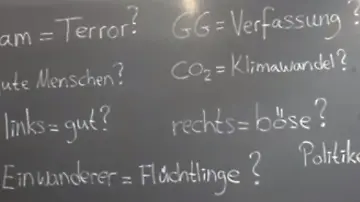 am = Terror?
GG = Verfassung?
ute Menschen?
CO₂ = Klimawandel?
links = gut?
rechts = böse?
Einwanderer = Flüchtlinge?
Politike